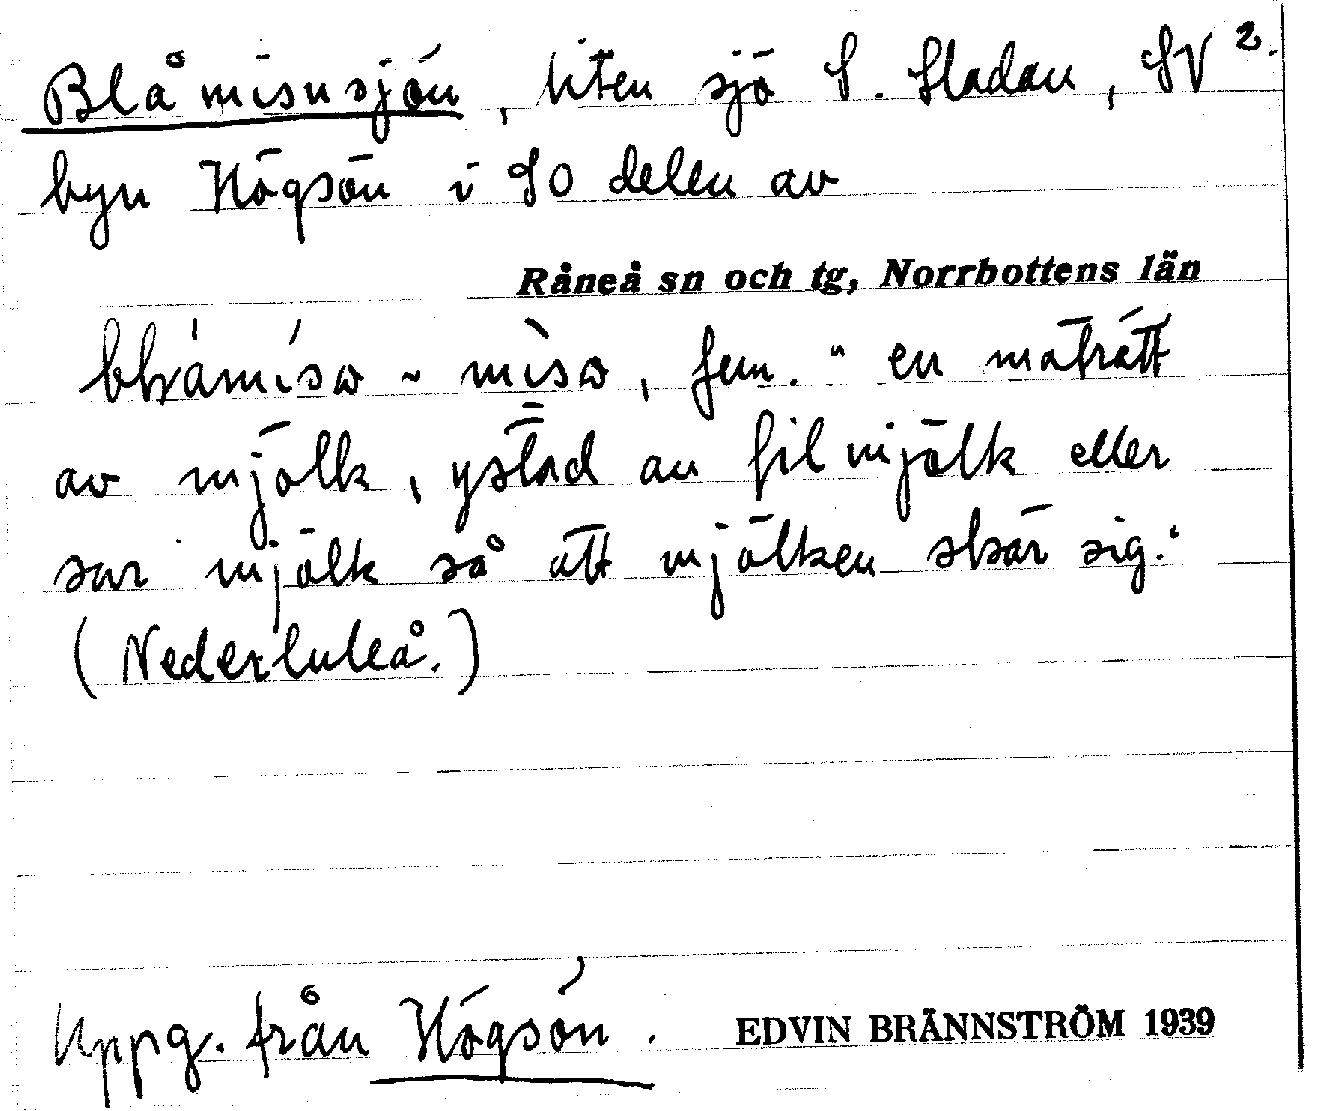 Blåmisusjön, liten sjö S. Sladan, SV 2.
byn Högsön i SO delen av
Råneå sn och tg, Norrbottens län
misω, fem. "en maträtt
av mjölk, ystad av filmjölk eller
sur mjölk så att mjölken skär sig."
(Nederluleå.)
Uppg. från Högsön.
EDVIN BRÄNNSTRÖM 1939